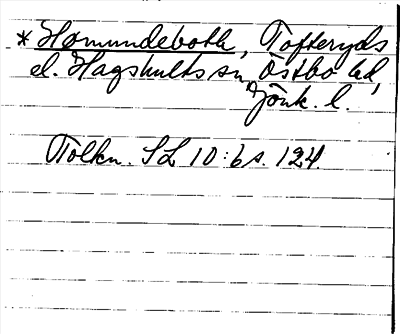 * Homundeboth, Tofteryds
el. Hagshults sn Östbo hd,
Jönk. l.
Tolkn. SL 10:6 s. 124